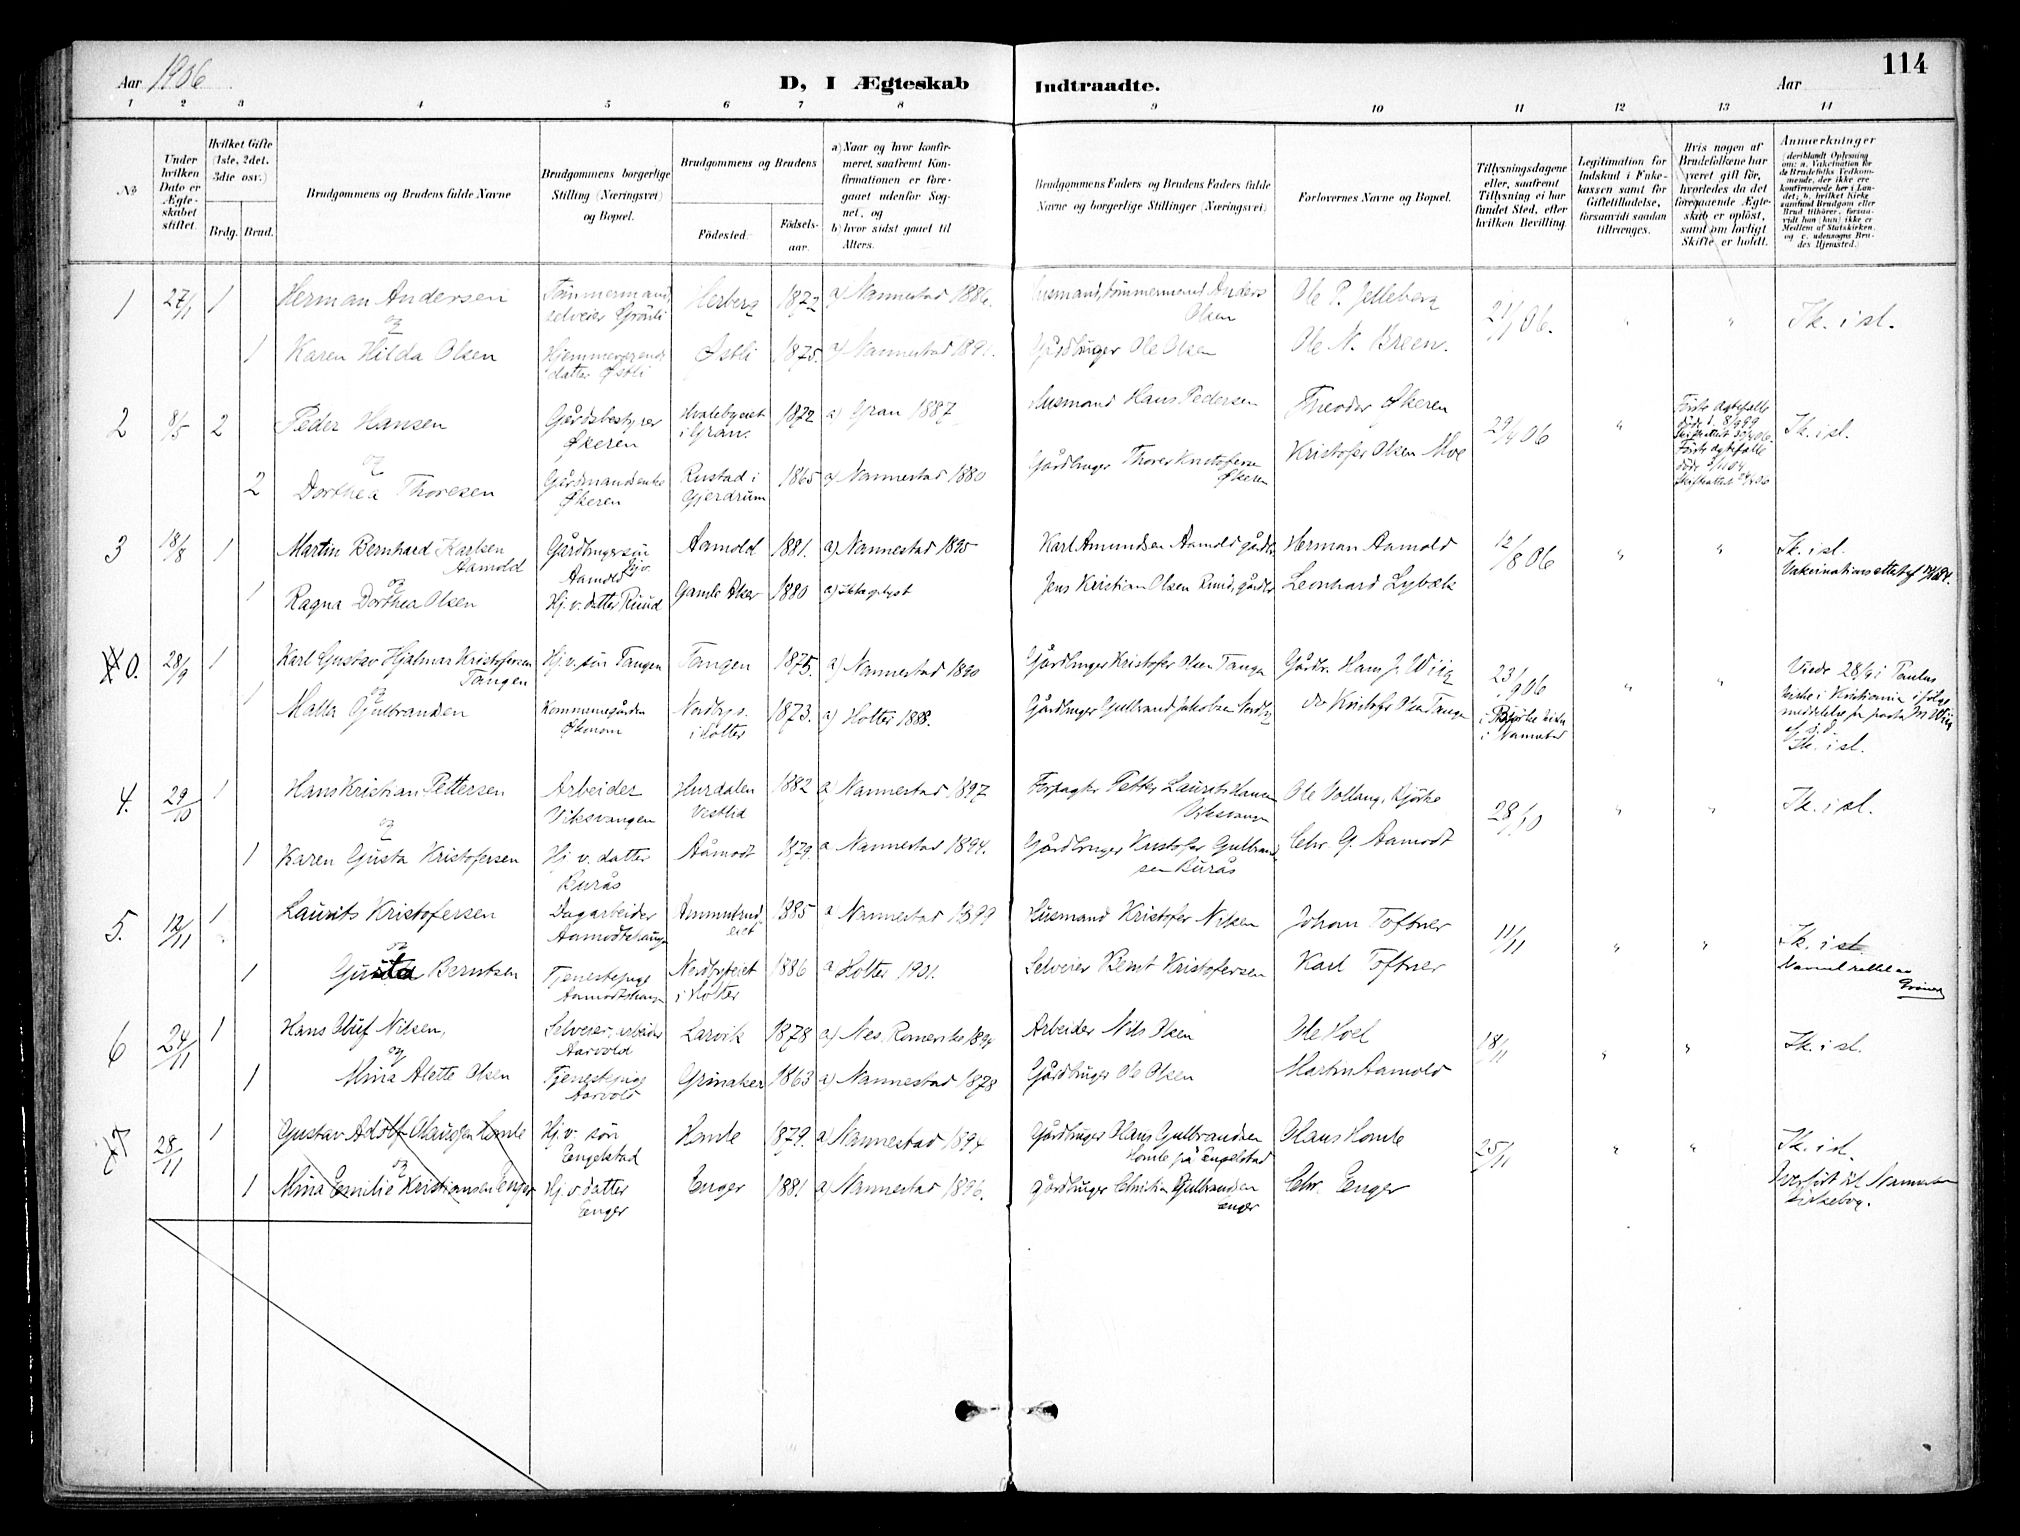 114
Aar 1906
D, I Ægteskab Indtraadte.
Aar
1 2 3 4 5 6 7 8 9 10 11 12 13 14
No
Under hvilken Dato er Ægteskabet stiftet.
Hvilket Gifte (1ste, 2det, 3die osv.)
Brdg. Brud.
Brudgommens og Brudens fulde Navne
Brudgommens borgerlige Stilling (Næringsvei) og Bopæl.
Brudgommens og Brudens
Fødested. Fødselsaar.
a) Naar og hvor konfirmeret, saafremt Konfirmationen er foregaaet udenfor Sognet, og
b) hvor sidst gaaet til Alters.
Brudgommens Faders og Brudens Faders fulde Navne og borgerlige Stillinger (Næringsvei)
Forlovernes Navne og Bopæl.
Tillysningsdagene eller, saafremt Tillysning ei har fundet Sted, efter hvilken Bevilling.
Legitimation for Indskud i Enkekassen samt for Giftetilladelse, forsaavidt saadan tiltrænges.
Hvis nogen af Brudefolkene har været gift før, hvorledes da det foregaaende Ægteskab er opløst, samt om lovligt Skifte er holdt.
Anmerkninger
1 27/1 1 Herman Andersen Tömmermand, selveier Grönli Herberg 1872 a) Nannestad 1886. Husmand, tömmermand Anders Olsen Ole P. Jelleberg 21/1 06. " " Ik. i sl.
og
1 Karen Hilda Olsen Hjemmeværende datter Østli Østli 1875. a) Nannestad 1891. Gårdbruger Ole Olsen Ole N. Breen.
2 8/5 2 Peder Hansen Gårdsbestyrer Økeren Hvalebyeiet i Gran. 1872 a) Gran 1887 Husmand Hans Pedersen Theodor Økeren 29/4 06 " Første ægtefælle døde Ik. i sl.
og
2 Dorthea Thoresen Gårdmandsenke Økeren Rustad i Gjerdrum 1865 a) Nannestad 1880 Gårdbruger Thorer Kristofersen Økeren Kristofer Olsen Moe
3 18/8 1 Martin Bernhard Karlsen Aamold Gårdbrugersön Aamold Aamold 1881. a) Nannestad 1895 Karl Amundsen Aamold gårdbr. Herman Aamold 12/8 06 " " Ik. i sl.
og
1 Ragna Dorthea Olsen Hj. v. datter Ruud Gamle Aker 1880 a) ikke oplyst Jens Kristian Olsen Ruud, gårdbr. Leonhard Lybæk Vakcinationsattest
0. 28/9 1 Karl Gustav Hjalmar Kristofersen Tangen Hj. v. sön Tangen Tangen 1875. a) Nannestad 1890 Gårdbruger Kristofer Olsen Tangen Gårdbr. Hans J. Wiig 23/9 06 " " Viede 28/9 i Paulus kirke i Kristiania i følge meddelelse fr. pastor Wiig
og
1 Malla Gulbrandsen Kommunegården Økonom Nordbye i Holter 1873. a) Holter 1888. Gårdbruger Gulbrand Jakobsen Nordby do Kristofer Olsen Tangen i Bjørke kirke i Nannestad Ik. i sl.
4. 29/10 1 Hans Kristian Pettersen Arbeider Viksvangen Hurdalen Vestlid 1882 a) Nannestad 1897 Forpagter Petter Laurits Hansen Viksvangen Ole Vollaug, Bjørke 28/10 " " Ik. i sl.
og
1 Karen Gusta Kristofersen Hj. v. datter Burås Aamodt 1879. a Nannestad 1894. Gårdbruger Kristofer Gulbrandsen Burås Chr. G. Aamodt
5. 12/11 1 Laurits Kristofersen Dagarbeider Aamodtshaugen Ammundrudeiet 1885 a Nannestad 1899 Husmand Kristofer Nilsen Johan Toftner 11/11 " " Ik. i sl.
og
1 Gusta Berntsen Tjenestepige Aamodtshaugen Nordbyeiet i Holter 1886 a Holter 1901. Selveier Bernt Kristofersen Karl Toftner
6 24/11 1 Hans Oluf Nilsen, Selveier, arbeider Aarvold Larvik 1878 a) Nes, Romerike 1894 Arbeider Nils Olsen Ole Hoel 18/11 " " Ik. i sl.
og
1 Mina Alette Olsen Tjenestepige Aarvold Grinaker 1863 a) Nannestad 1878 Gårdbruger Ole Olsen Martin Aamold
7 28/11 1 Gustav Adolf Olaussen Homle Hj. v. sön Engelstad Homle 1879. a) Nannestad 1894 Gårdbruger Olaus Gulbrandsen Homle på Engelstad Olaus Homle 25/11 " " Ik. i sl.
og
1 Mina Emilie Kristiansen Enger Hj. v. datter Enger Enger 1881. a) Nannestad 1896. Gårdbruger Christian Gulbrandsen Enger Chr. Enger Overført til Nannestad kirkebog.